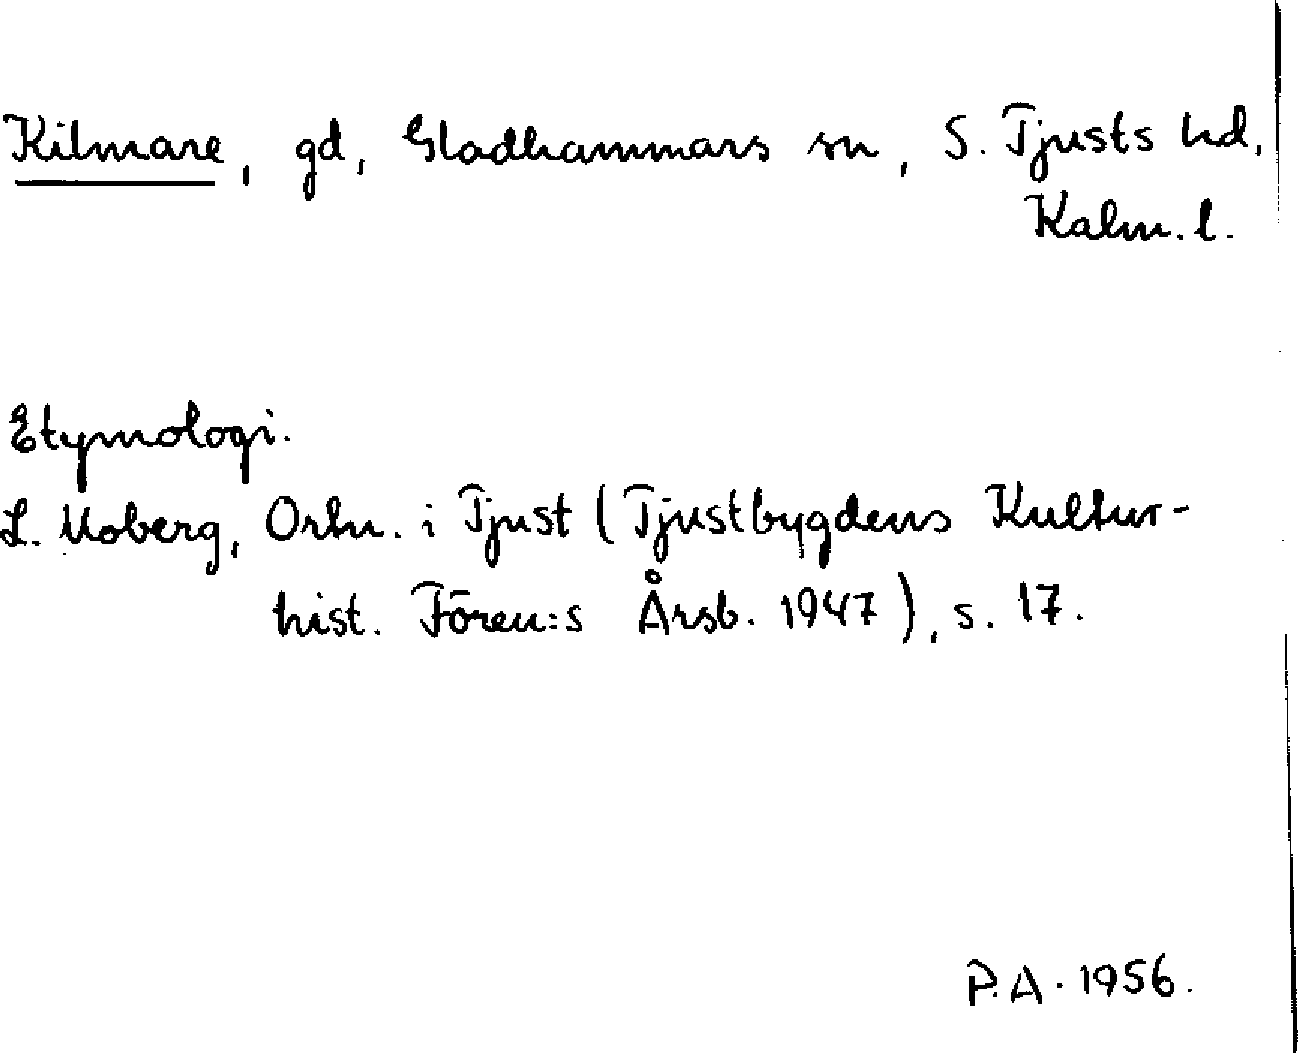 Kilmare, gd, Gladhammars sn, S. Tjusts hd,
Kalm. l.
Etymologi.
L. Moberg, Ortn. i Tjust (Tjustbygdens Kultur-
hist. Fören:s Årsb. 1947), s. 17.
P.A. 1956.